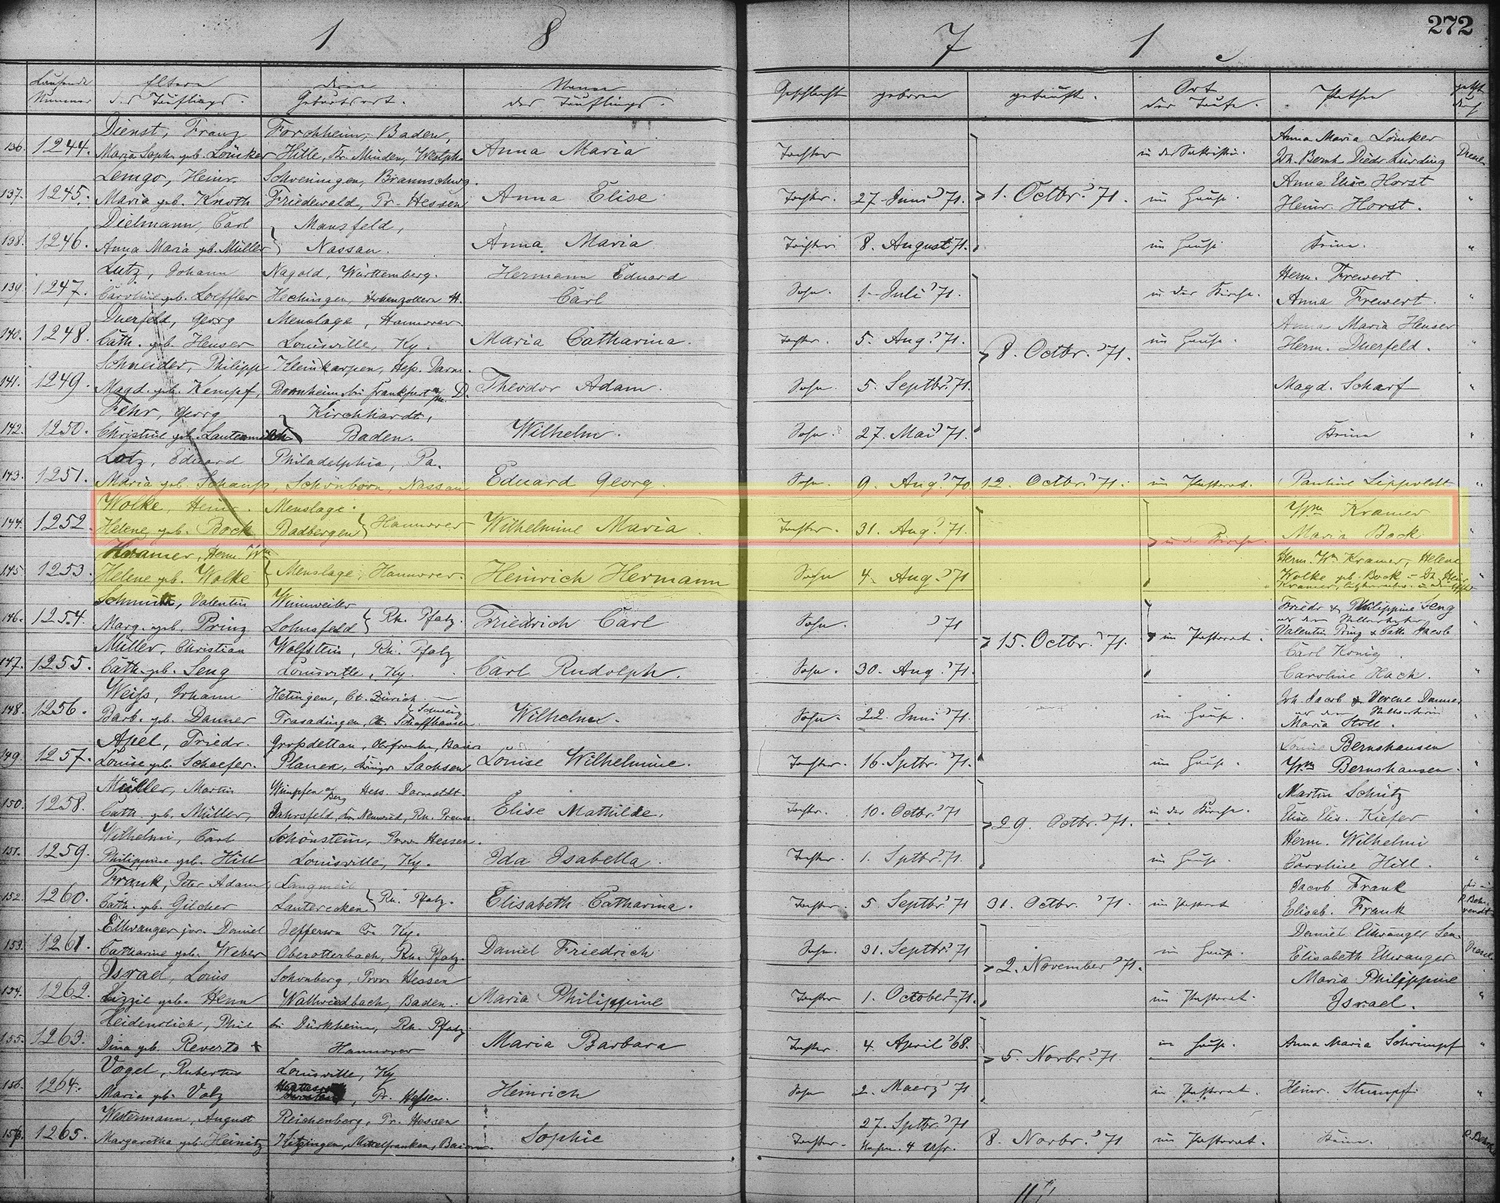 272
1 8 7 1
Laufende Eltern deren Name Geschlecht geboren getauft. Ort Pathen
Nummer des Täuflings. Geburtsort. des Täuflings. der Taufe.
Dienst, Franz Forchheim, Baden, Anna Maria Lömker
136. 1244. Maria Soph. geb. Lömker Hille, Kr. Minden, Westph. Anna Maria Tochter in der Sakristei. Joh. Bernh. Diedr. Lürding
Lemgo, Heinr. Schoeningen, Braunschwg. Anna Elise Horst
137. 1245. Maria geb. Knoth Friedewald, Pr. Hessen Anna Elise Tochter. 27 Juni '71. 1. Octbr. '71. im Hause. Heinr. Horst.
Dielmann, Carl Mansfeld,
138. 1246. Anna Maria geb. Müller Nassau. Anna Maria Tochter. 8. August '71. im Hause. Keine.
Lutz, Johann Nagold, Württemberg. Hermann Eduard Herm. Frewert
139. 1247. Caroline geb. Loeffler Hechingen, Hohenzollern Carl Sohn. 1. Juli '71. in der Kirche. Anna Frewert.
Duerfeld, Georg Menslage, Hannover Anna Maria Heuser
140. 1248. Cath. geb. Heuser Louisville, Ky. Maria Catharina. Tochter. 5. Aug. '71. 8. Octbr. '71. im Hause. Herm. Duerfeld.
Schneider, Philipp Hess. Darm.
141. 1249. Magd. geb. Kempf, Bornheim bei Frankfurt Theodor Adam. Sohn. 5. Septbr. '71. Magd. Scharf
Fehr, Georg Kirchhardt,
142. 1250. Christine geb. Baden. Wilhelm. Sohn. 27. Mai '71. Keine
Lotz, Eduard Philadelphia, Pa.
143. 1251. Maria geb. Schaup, Schönborn, Nassau Eduard Georg. Sohn. 9. Aug. '70. 12. Octbr. '71. im Pastorat. Pauline Lippoldt
Wolke, Heinr. Menslage. Wm Kramer
144. 1252. Helene geb. Bock Badbergen Hannover Wilhelmine Maria Tochter. 31. Aug. '71. in der Kirche. Maria Bock
Kramer, Herm. Wm Herm. Wm Kramer, Helene
145. 1253. Helene geb. Wolke Menslage, Hannover. Heinrich Hermann Sohn 4. Aug. '71 Wolke geb. Bock
Schmitt, Valentin Winnweiler Friedr. & Philippine Seng
146. 1254. Marg. geb. Prinz Lohnsfeld Rh. Pfalz. Friedrich Carl Sohn. '71 15. Octbr. '71. im Pastorat.
Müller, Christian Wolfstein, Rh. Pfalz Carl König
147. 1255. Cath. geb. Seng Louisville, Ky. Carl Rudolph. Sohn. 30. Aug. '71. Caroline Hach.
Weiss, Johann Hetingen, Ct. Zürich Joh. Jacob & Verene Danner
148. 1256. Barb. geb. Danner Trasadingen, Ct. Schaffhausen. Wilhelm. Sohn. 22. Juni '71. im Hause. Maria Stoll.
Apel, Friedr. Oberfranken, Baiern Louise Bernshausen
149. 1257. Louise geb. Schaefer. Planen, Königr. Sachsen Louise Wilhelmine. Tochter. 16. Sptbr. '71. im Hause. Wm Bernshausen.
Müller, Martin Wimpfen a/Berg Hess. Darmstdt. Martin Schütz
150. 1258. Cath. geb. Müller, Elise Mathilde. Tochter. 10. Octbr. '71 29. Octbr. '71. in der Kirche. Elise Elis. Kiefer
Wilhelmi, Carl Schönstein, Prov. Hessen. Herm. Wilhelmi
151. 1259. Philippine geb. Hill Louisville, Ky. Ida Isabella. Tochter. 1. Sptbr. '71. im Hause. Caroline Hill.
Frank, Peter Adam Langmeil Jacob Frank
152. 1260. Cath. geb. Gilcher Lauterecken Rh. Pfalz. Elisabeth Catharina. Tochter. 5 Septbr. '71 31. Octbr. '71. im Pastorat Elisab. Frank
Ellwanger jun. Daniel Jefferson Co. Ky. Daniel Ellwanger Sen.
153. 1261. Catharine geb. Weber Oberotterbach, Rh. Pfalz. Daniel Friedrich Sohn. 21. Septbr. '71 2. November '71. im Hause. Elisabeth Ellwanger
Israel, Louis Schonberg, Prov. Hessen Maria Philippine
154. 1262. Lizzie geb. Henn Baden. Maria Philippine Tochter 1. October '71. im Pastorat. Israel.
Heidenreich, Phil. bei Dürkheim, Rh. Pfalz.
155. 1263. Dina geb. Hannover Maria Barbara Tochter. 4. April '68. 5. Novbr. '71 im Hause. Anna Maria Schrimpf
Vogel, Hubertus Louisville, Ky
156. 1264. Maria geb. Volz Pr. Hessen. Heinrich Sohn 2. Maerz '71 im Pastorat. Heinr. Stumpf
Westermann, August Reichenberg, Pr. Hessen 27. Sptbr. '71
157. 1265. Margaretha geb. Heinitz Kitzingen, Mittelfranken, Baiern. Sophie Tochter. 4 Uhr. 8. Novbr. '71 im Pastorat. Keine.